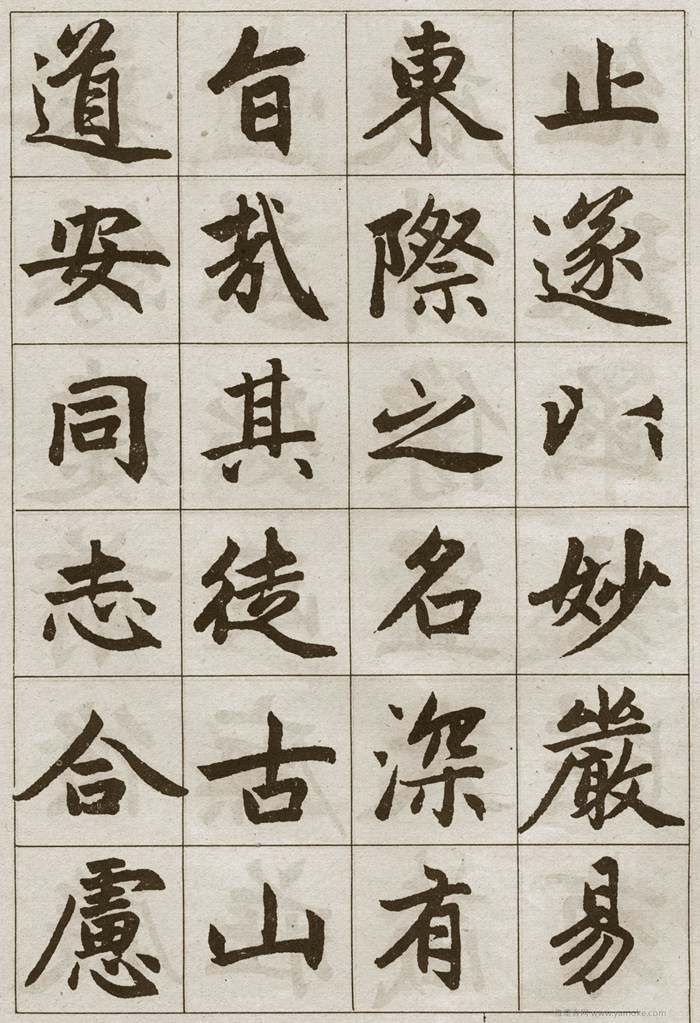 止遂以妙嚴易
東際之名深有
旨哉其徒古山
道安同志合慮
www.yamoke.com